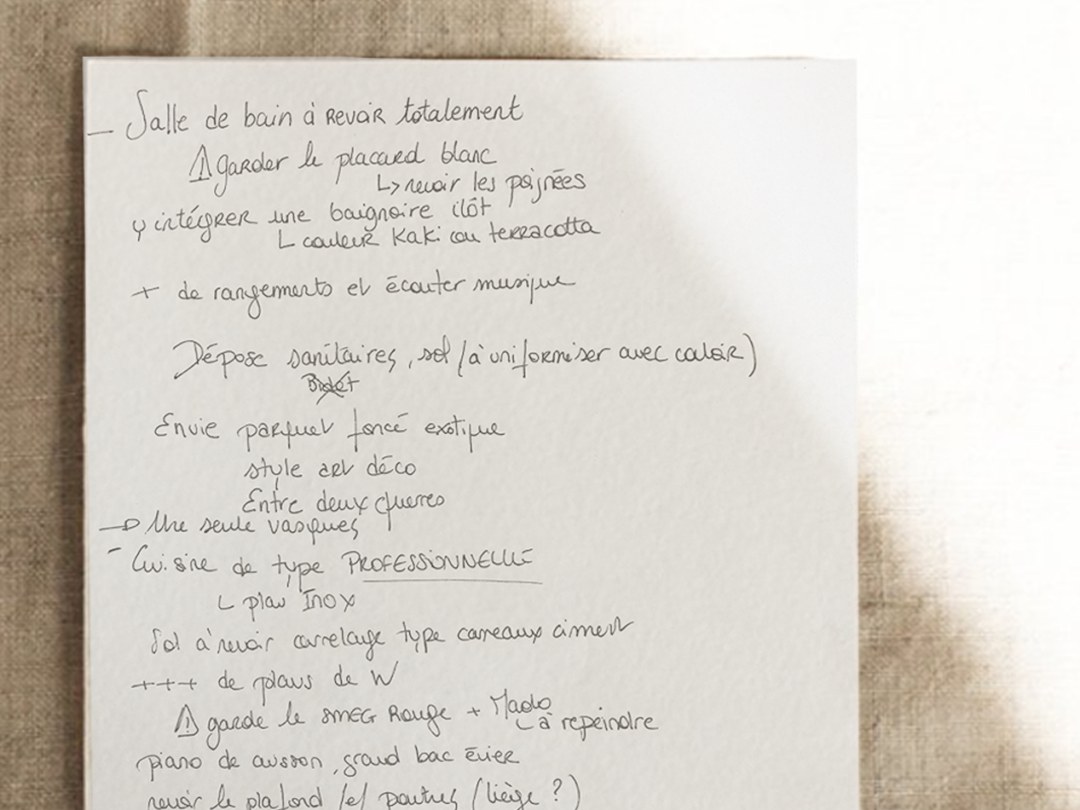 — Salle de bain à revoir totalement
⚠ garder le placard blanc
↳ revoir les poignées
intégrer une baignoire ilôt
↳ couleur Kaki ou terracotta
+ de rangements et écouter musique
Dépose sanitaires, sol (à uniformiser avec couloir)
Bidet
Envie parquet foncé exotique
style art déco
Entre deux guerres
→ Une seule vasques
- Cuisine de type PROFESSIONNELLE
↳ plan Inox
Sol à revoir carrelage type carreaux ciment
+++ de plans de W
⚠ garde le SMEG Rouge + Mado
↳ à repeindre
piano de cuisson, grand bac évier
revoir le plafond (et poutres (liège ?)